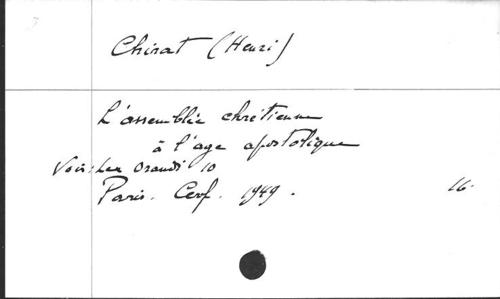 Chirat (Henri)
L'assemblée chrétienne
à l'age apostolique
Voir: Lex Orandi 10
Paris. Cerf. 1949. 16.